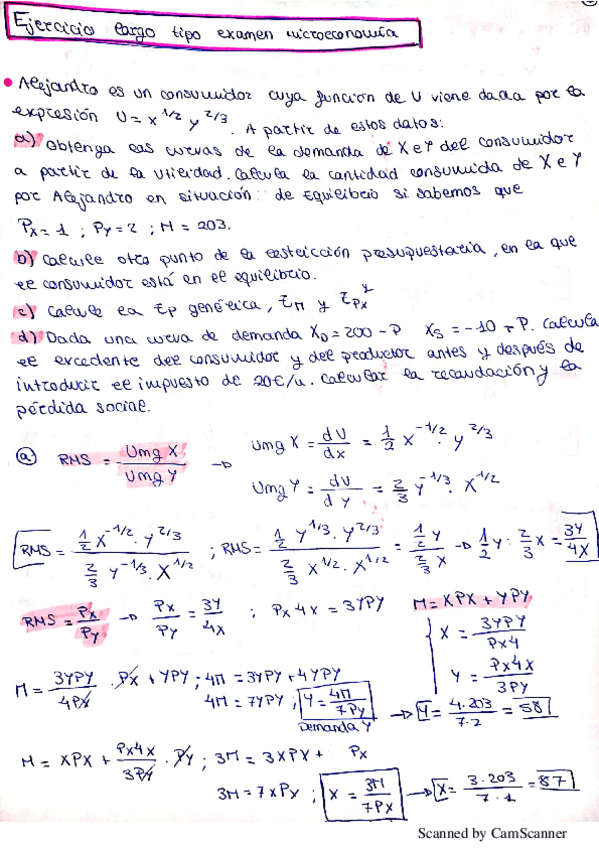 Ejercicio largo tipo examen microeconomía
• Alejandro es un consumidor cuya función de U viene dada por la
expresión U = x^1/2 y^2/3. A partir de estos datos:
a) Obtenga las curvas de la demanda de X e Y del consumidor
a partir de la utilidad. Calcula la cantidad consumida de X e Y
por Alejandro en situación de Equilibrio si sabemos que
Px = 1 ; Py = 2 ; M = 203.
b) Calcule otro punto de la restricción presupuestaria, en la que
el consumidor está en el equilibrio.
c) Calcule la Ep genérica, EM y EPx^y
d) Dada una curva de demanda XD = 200 - P XS = -10 + P. Calcula
el excedente del consumidor y del productor antes y después de
introducir el impuesto de 20€/u. Calcular la recaudación y la
pérdida social.
a) RMS = Umg X / Umg Y → Umg X = dU/dx = 1/2 x^-1/2 · y^2/3
Umg Y = dU/dy = 2/3 y^-1/3 · x^1/2
RMS = (1/2 x^-1/2 · y^2/3) / (2/3 y^-1/3 · x^1/2) ; RMS = (1/2 y^1/3 · y^2/3) / (2/3 x^1/2 · x^1/2) = (1/2 y) / (2/3 x) → 1/2 y : 2/3 x = 3y/4x
RMS = Px/Py → Px/Py = 3y/4x ; Px4x = 3YPY M = XPX + YPY
X = 3YPY / Px4
Y = Px4x / 3PY
M = 3YPY/4PX · PX + YPY ; 4M = 3YPY + 4YPY
4M = 7YPY ; Y = 4M/7Py → Y = 4·203 / 7·2 = 58
Demanda Y
M = XPX + Px4x/3PY · PY ; 3M = 3XPX + Px
3M = 7xPx ; X = 3M/7Px → X = 3·203 / 7·1 = 87
Scanned by CamScanner